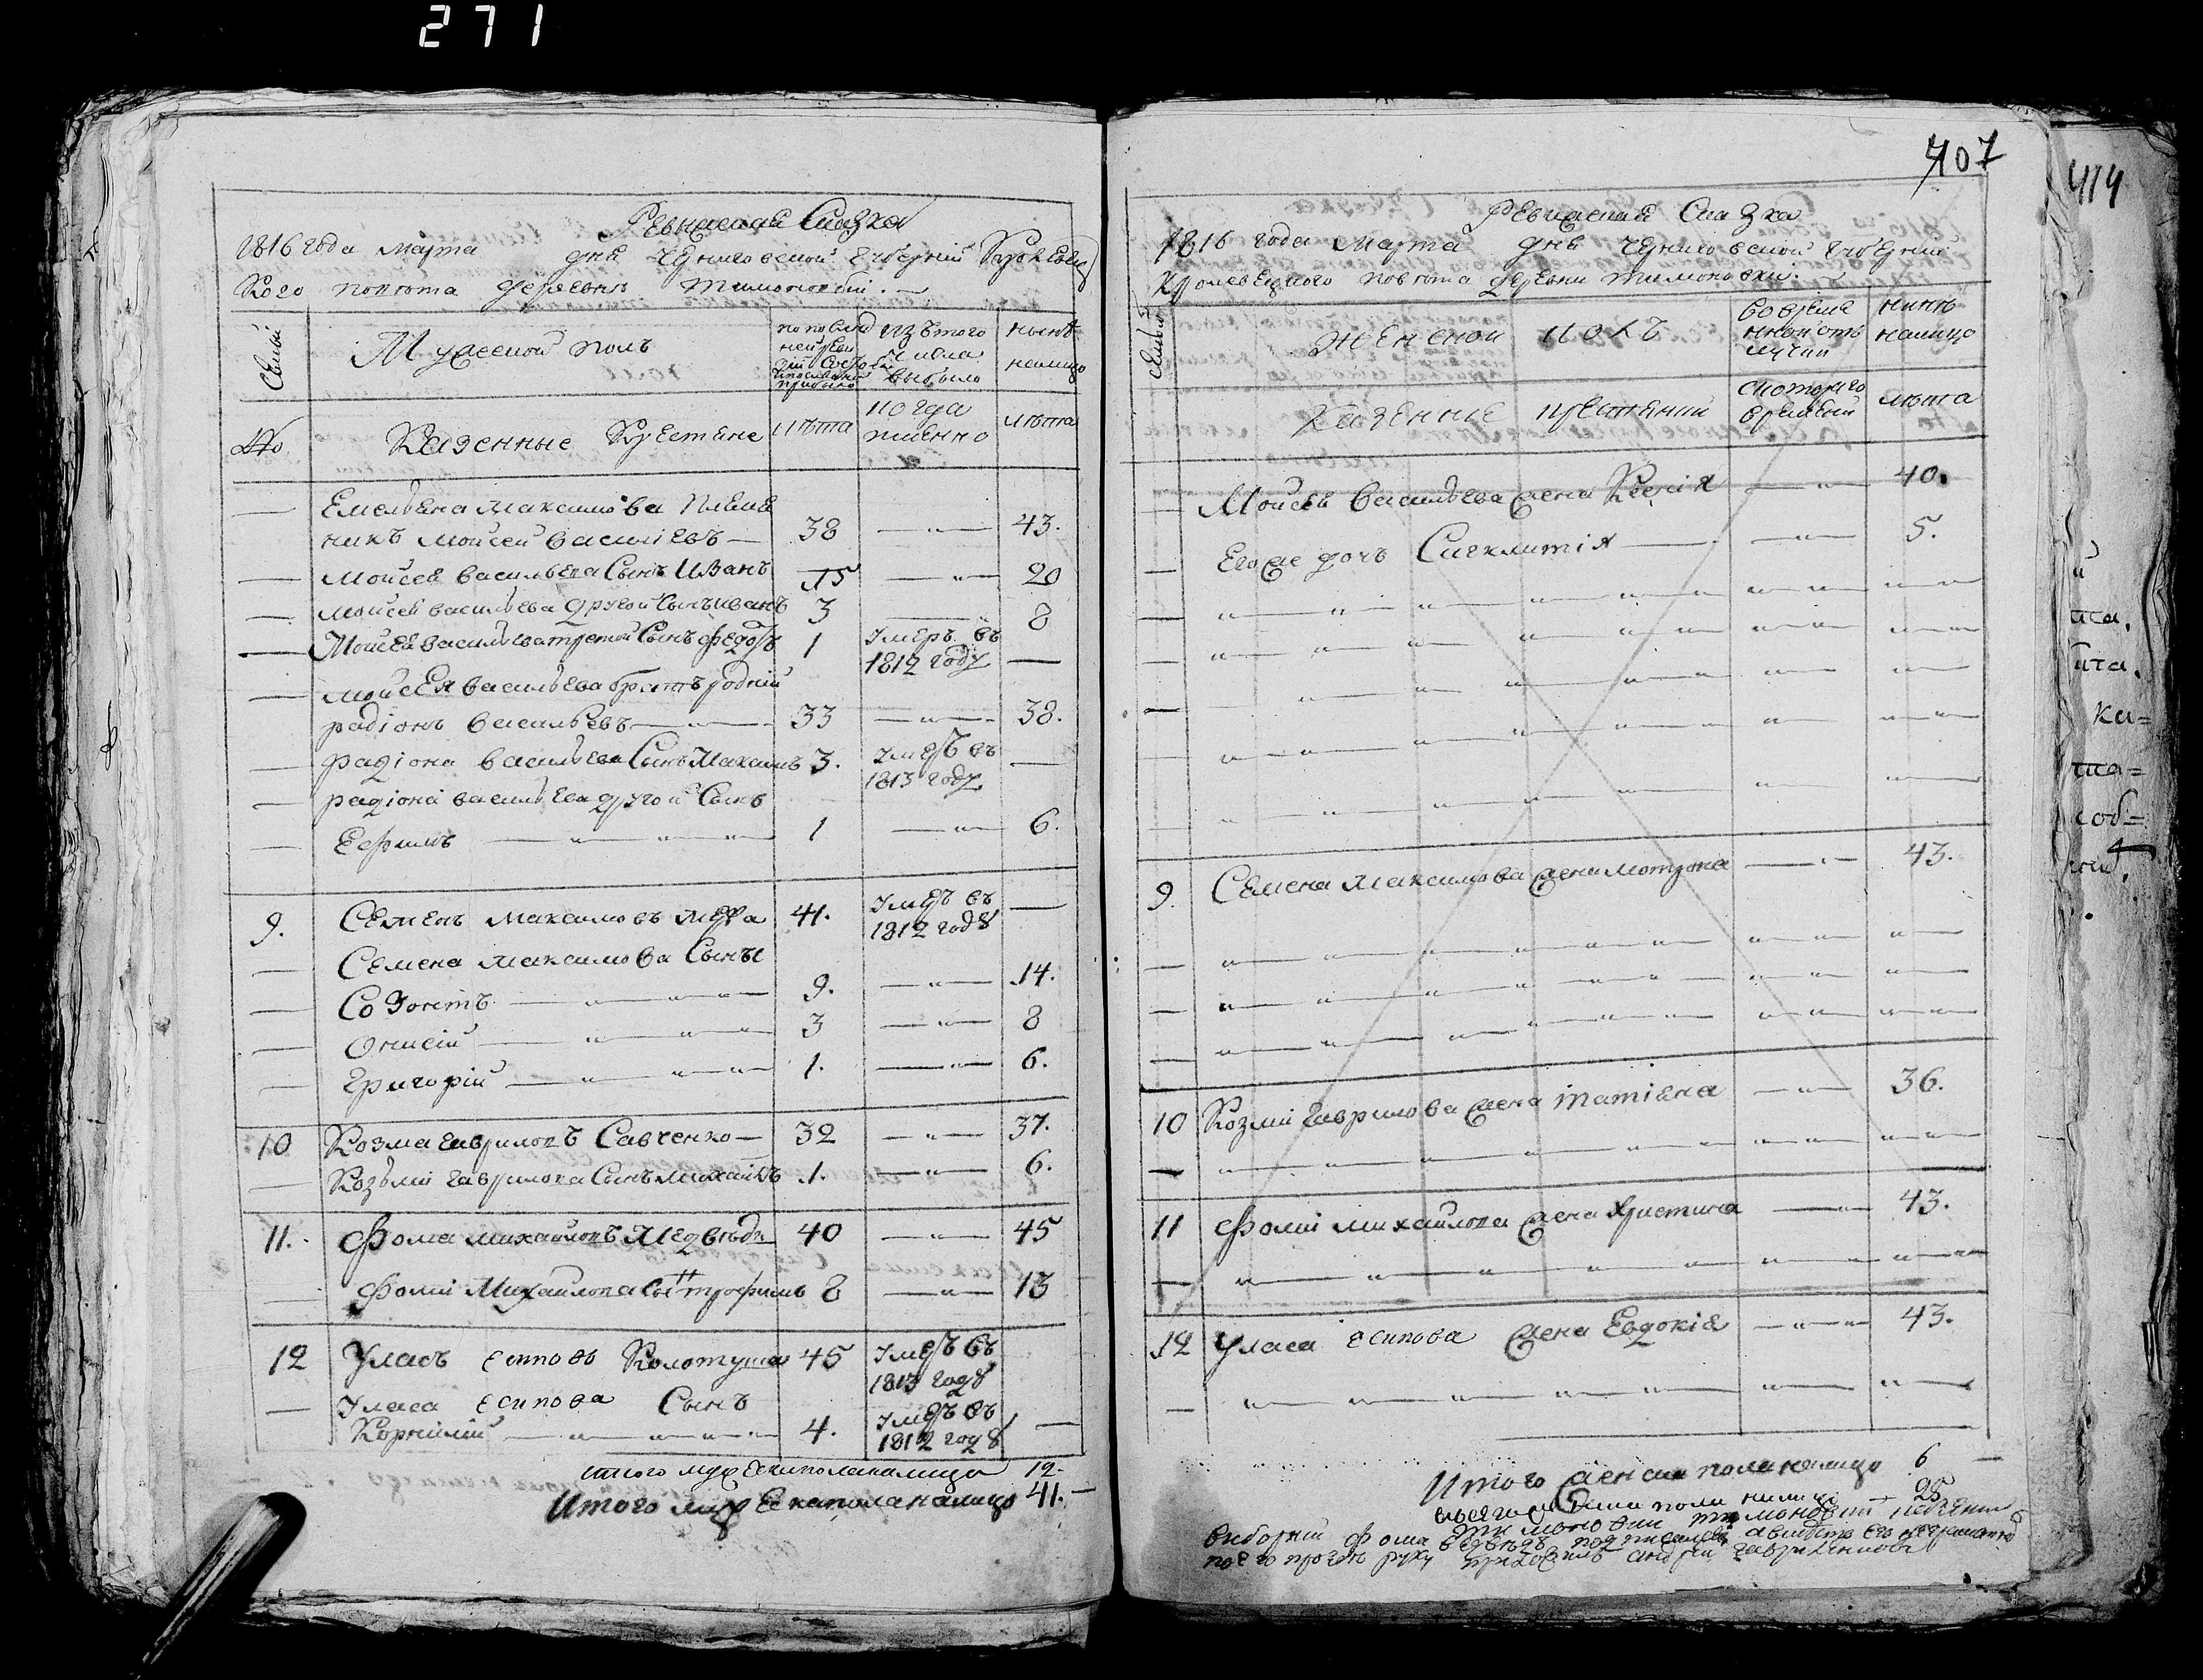 271
Ревижская Сказка
1816 года марта дня Черниговской Губернии Кролевец
кого повѣта деревни Тимоновки.
Семьи
Мужеской полъ
по послѣд
ней реви
зіи состояло
и послѣ оной
прибыло
изъ того
числа
выбыло
нынѣ
налицо
№
Казенные Крестяне
лѣта
когда
имянно
лѣта
Емельяна Максимова племя
никъ Мойсей Василіевъ 38 43.
Мойсея Васильева Сынъ Иванъ 15 20
Мойсея Васильева другой Сынъ Иванъ 3 8
Мойсея Васильева третой Сынъ Федоръ 1 Умеръ въ
1812 году
Мойсея Васильева братъ родній
Радіонъ Васильевъ 33 38.
Радіона Васильева Сынъ Максимъ 3. Умеръ въ
1813 году
Радіона Васильева другой Сынъ
Ефимъ 1 6.
9. Семенъ Максимовъ 41. Умеръ въ
1812 году
Семена Максимова Сыны
Созонтъ 9. 14.
Онисій 3 8
Григорій 1. 6.
10 Козма Гавриловъ Савченко 32 37.
Козьми Гаврилова Сынъ Михайлъ 1. 6.
11. Фома Михайловъ Медвѣдь 40 45
Фоми Михайлова Сынъ Трофимъ 8 13
12 Уласъ Есиповъ Колотуша 45 Умеръ въ
1813 году
Уласа Есипова Сынъ
Корнилій 4. Умеръ въ
1812 году
Итого мужеска пола налицо 12.
Итого муж Еска пола налицо 41.
707
Ревижская Сказка
1816 года Марта дня Черниговской Губерніи
Кролевецкого повѣта деревни Тимоновки.
Семьи
Женской полъ
во время
нной отъ
лучки
нинѣ
налицо
Казенніе Крестяний
скоторого
времени
лѣта
Мойсея Васильева жена Ксенія 40.
Его же дочъ Сигклитія 5.
9 Семена Максимова жена Мотрона 43.
10 Козми Гаврилова жена Татіана 36.
11 Фоми Михайлова жена Христина 43.
12 Уласа Есипова жена Евдокія 43.
Итого женска пола налицо 6
всего пола налицо 28
414
та.
ка=
та=
соб=